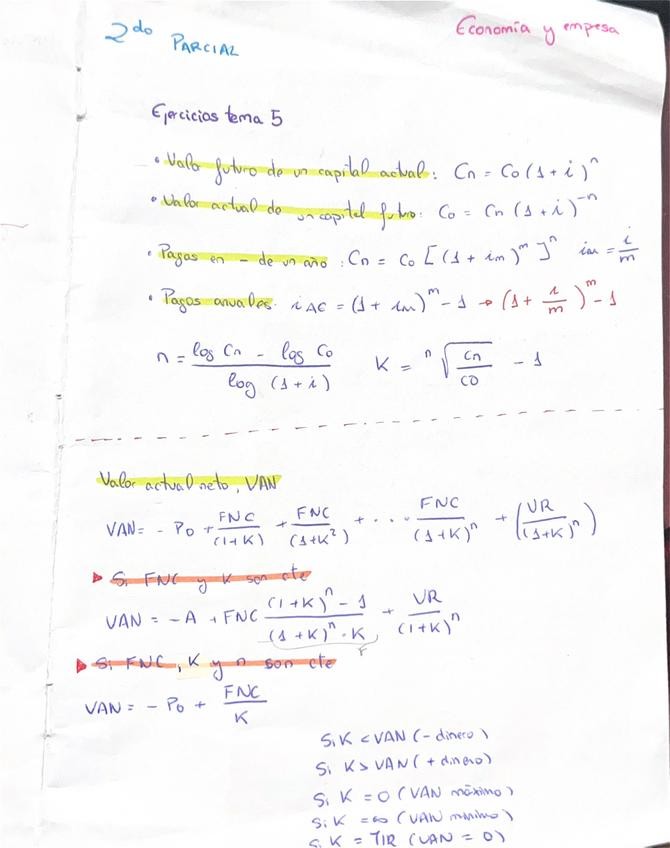 2do PARCIAL
Economía y empesa
Ejercicios tema 5
• Valor futuro de un capital actual: Cn = Co (1 + i)^n
• Valor actual de un capital futuro: Co = Cn (1 + i)^-n
• Pagos en - de un año : Cn = Co [(1 + im)^m]^n im = i/m
• Pagos anuales: iAC = (1 + im)^m - 1 → (1 + i/m)^m - 1
n = (log Cn - log Co)/(log (1 + i)) K = n√(Cn/CO) - 1
Valor actual neto, VAN
VAN = - Po + FNC/(1+K) + FNC/(1+K²) + ... FNC/(1+K)^n + (VR/(1+K)^n)
▶ Si FNC y K son cte
VAN = -A + FNC ((1+K)^n - 1)/((1+K)^n · K) + VR/(1+K)^n
▶ Si FNC, K y n son cte
VAN = - Po + FNC/K
Si K < VAN (- dinero)
Si K > VAN (+ dinero)
Si K = 0 (VAN máximo)
Si K = ∞ (VAN mínimo)
Si K = TIR (VAN = 0)